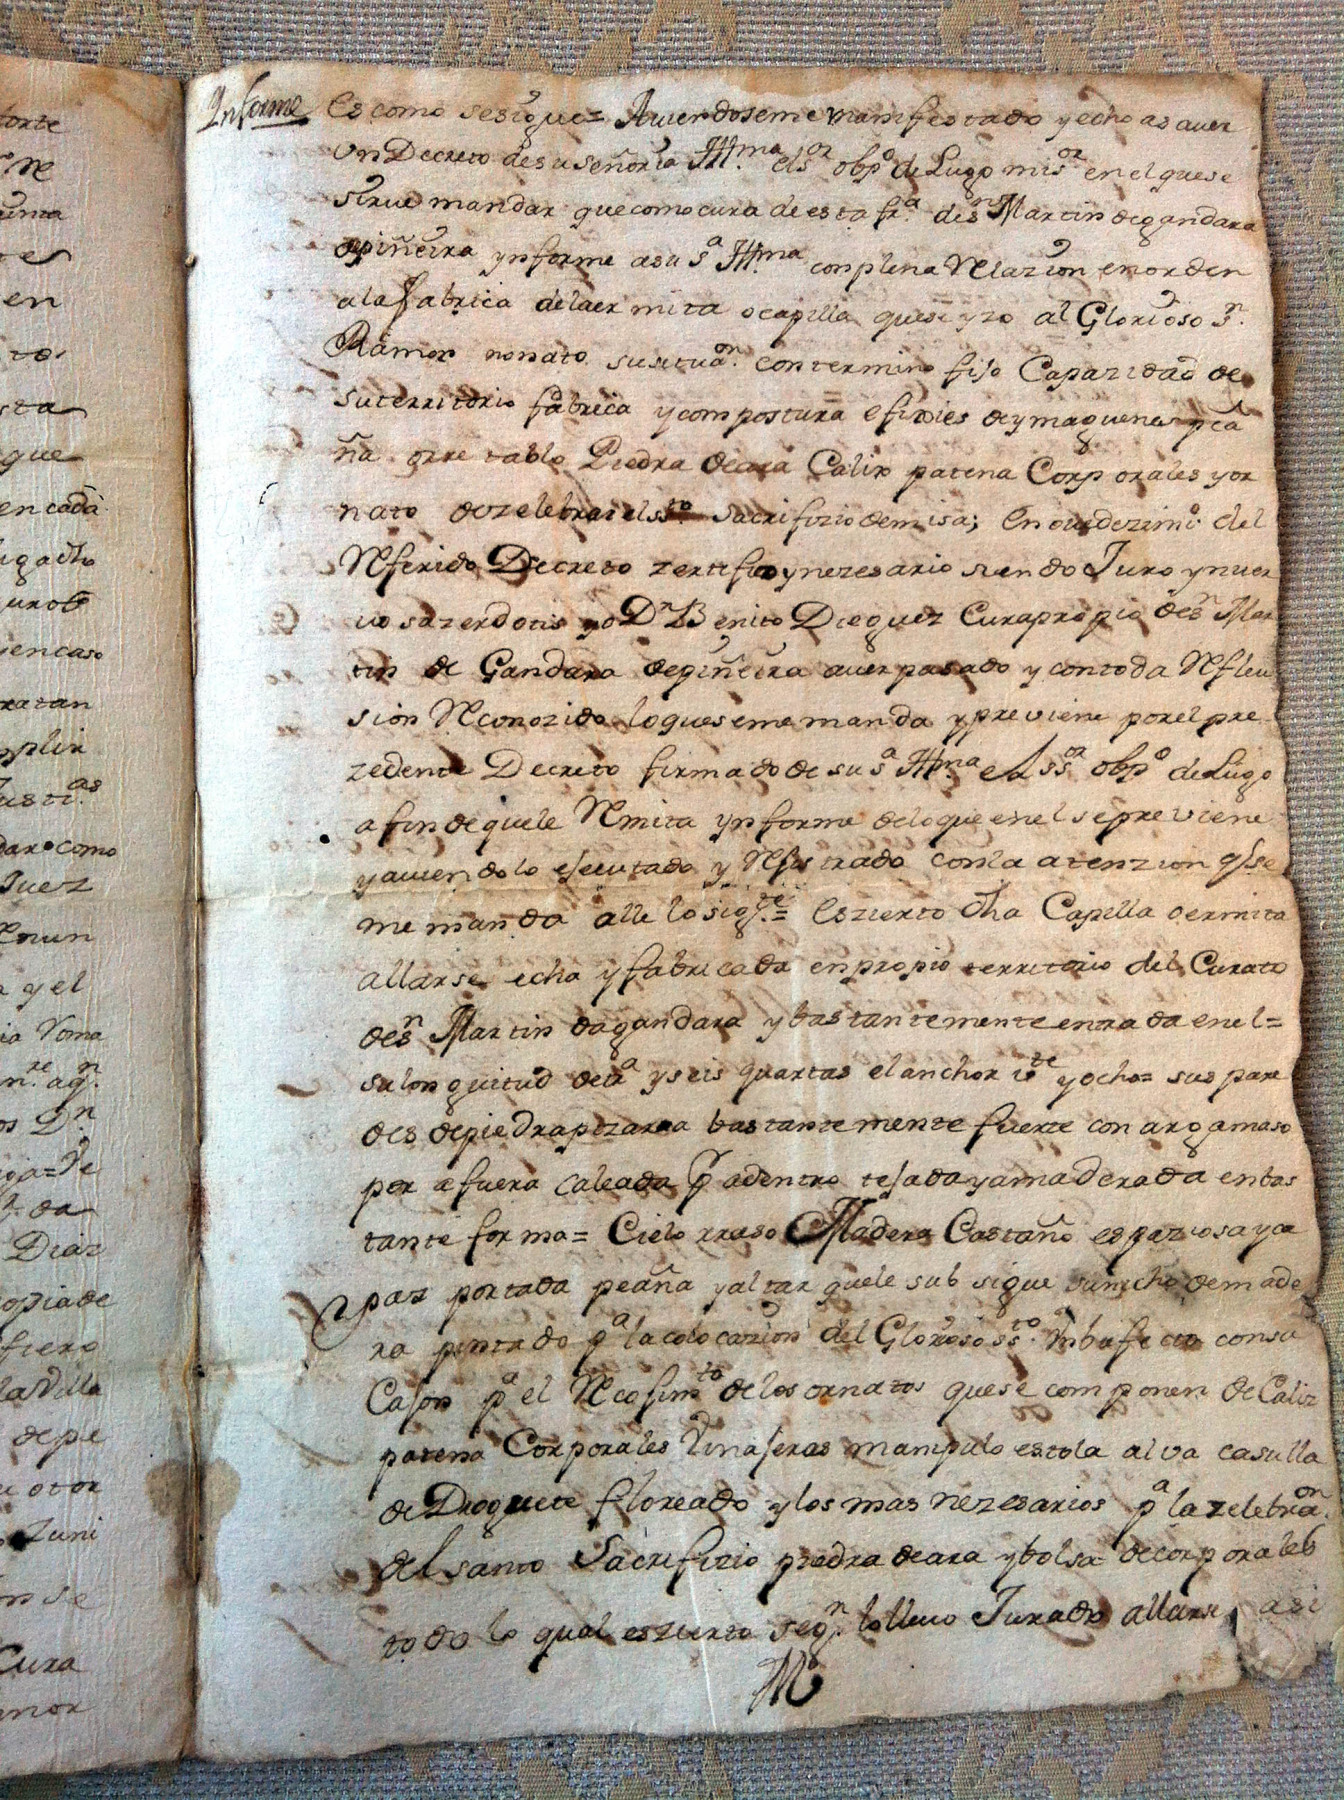 orte
uma
en
sta
que
en cada
ugar dho
en caso
ratan
mplir
Justas
dar como
Juez
enun
a y el
ia Toma
os Dn
da
Diaz
opia de
fiero
la Villa
de pe
u otor
Juni
n se
Cura
mor
Informe
Es como sesigue= Aviendoseme manifestado y echo as aver
Un Decreto de su Señoria Illma el sor obpo de Lugo mi sor en el que se
sirve mandar que como cura de esta fra de sn Martin de gandara
de piñeira ynforme a su sa Illma con plena Relazion en orden
a la fabrica de la ermita o capilla que se yzo al Glorioso sn
Ramon nonato su situaon con termino fijo Capazidad de
su territorio fabrica y compostura efixies de ymaguenes pea
ña o rretablo Piedra de ara Calix patena Corporales y or
nato de zelebrar el ssto sacrifizio de misa; En ovedezimto del
Referido Decreto zertifico y nezesario siendo Juro yn ver
vo sazerdotis yo Dn Benito Dieguez Cura propio de sn Mar
tin de Gandara de piñeira aver pasado y con toda Reflexi
sion Reconozido lo que se me manda y previene por el pre
zedente Decreto firmado de su sa Illma el ssor obpo de Lugo
a fin de que le Remita ynforme de lo que en el se previene
y aviendolo ejecutado y Rejistrado con la atenzion q se
me manda alle lo sigte= Es zierto dha Capilla o ermita
allarse echa y fabricada en propio territorio del Curato
de sn Martin da gandara y bastantemente en rada en el=
su longuitud de tra y seis quartas el anchor vte y ocho= sus pare
des de piedra pizarra bastantemente fuerte con argamaso
por afuera caleada pr adentro tejada y amaderada en bas
tante forma= Cielo rraso Madera Castaño espaziosa y ca
paz portada peaña y altar que le sub sigue su nicho de made
ra pintado pa la colocazion del Glorioso ssto yn bufecto con su
Cajon pa el Recojimto de los ornatos que se componen de Caliz
patena Corporales Vinajeras manipulo estola alva casulla
de Droguete floreado y los mas nezesarios pa la zelebraon
del santo Sacrifizio piedra de ara y bolsa de corporales
todo lo qual es zierto segn lo llevo Jurado allarse asi